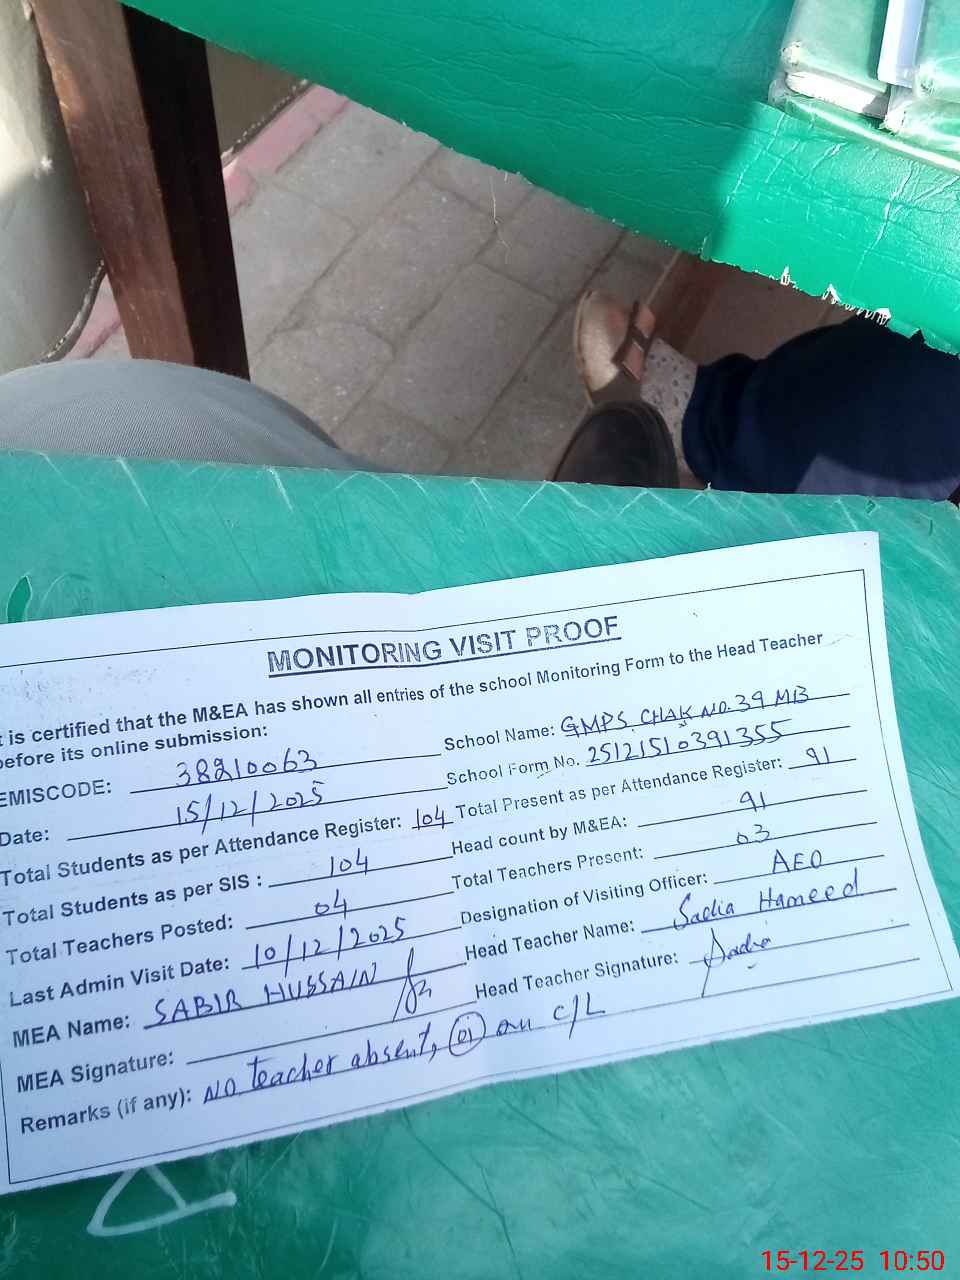 MONITORING VISIT PROOF
t is certified that the M&EA has shown all entries of the school Monitoring Form to the Head Teacher
before its online submission:
EMISCODE: 38210063 School Name: GMPS CHAK NO. 39 MB
Date: 15/12/2025 School Form No. 25121510391355
Total Students as per Attendance Register: 104 Total Present as per Attendance Register: 91
Total Students as per SIS : 104 Head count by M&EA: 91
Total Teachers Posted: 04 Total Teachers Present: 03
Last Admin Visit Date: 10/12/2025 Designation of Visiting Officer: AEO
MEA Name: SABIR HUSSAIN Head Teacher Name: Sadia Hameed
MEA Signature: Head Teacher Signature: Sadia
Remarks (if any): NO teacher absent, 01 on C/L
15-12-25 10:50